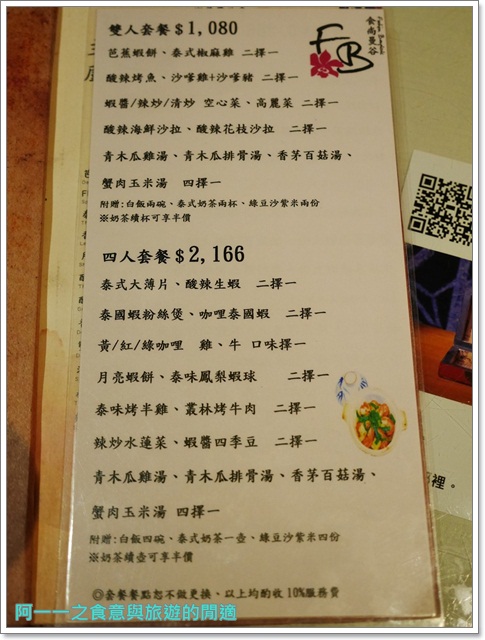 雙人套餐 $1,080
食尚曼谷
FB
芭蕉蝦餅、泰式椒麻雞 二擇一
酸辣烤魚、沙嗲雞+沙嗲豬 二擇一
蝦醬/辣炒/清炒 空心菜、高麗菜 二擇一
酸辣海鮮沙拉、酸辣花枝沙拉 二擇一
青木瓜雞湯、青木瓜排骨湯、香茅百菇湯、
蟹肉玉米湯 四擇一
附贈:白飯兩碗、泰式奶茶兩杯、綠豆沙紫米兩份
※奶茶續杯可享半價
四人套餐 $2,166
泰式大薄片、酸辣生蝦 二擇一
泰國蝦粉絲煲、咖哩泰國蝦 二擇一
黃/紅/綠咖哩 雞、牛 口味擇一
月亮蝦餅、泰味鳳梨蝦球 二擇一
泰味烤半雞、叢林烤牛肉 二擇一
辣炒水蓮菜、蝦醬四季豆 二擇一
青木瓜雞湯、青木瓜排骨湯、香茅百菇湯、
蟹肉玉米湯 四擇一
附贈:白飯四碗、泰式奶茶一壺、綠豆沙紫米四份
※奶茶續壺可享半價
◎套餐餐點恕不做更換、以上均酌收10%服務費
裡。
阿一一之食意與旅遊的閒適